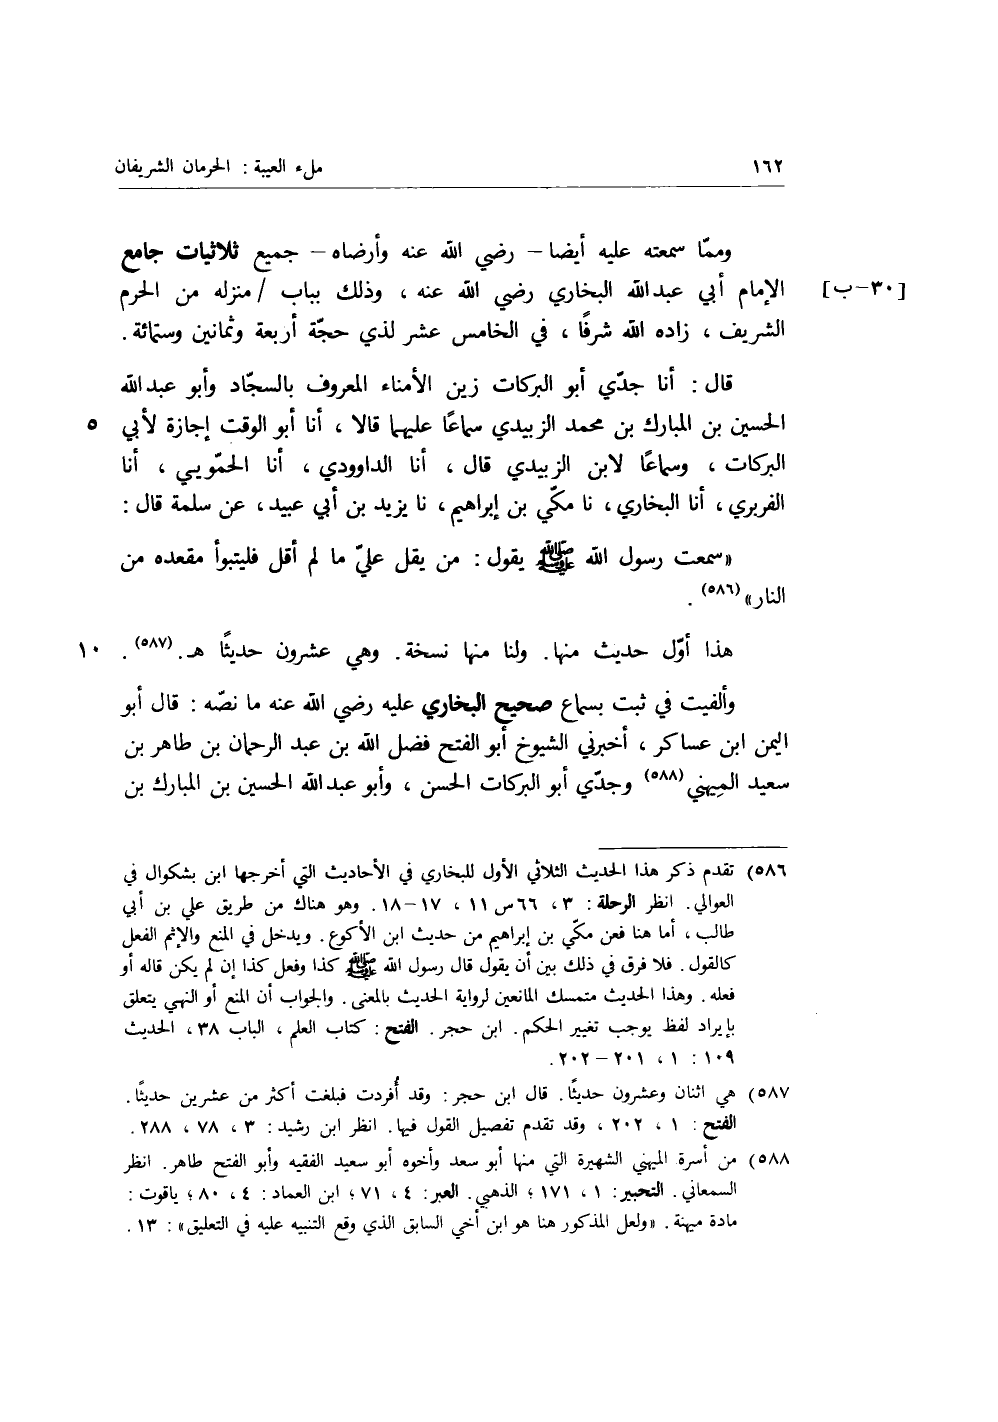 ١٦٢ ملء العيبة : الحرمان الشريفان
وممّا سمعته عليه أيضا - رضي الله عنه وأرضاه - جميع ثلاثيات جامع
[٣٠-ب] الإمام أبي عبدالله البخاري رضي الله عنه ، وذلك بباب / منزله من الحرم
الشريف ، زاده الله شرفًا ، في الخامس عشر لذي حجّة أربعة وثمانين وستمائة .
قال : أنا جدّي أبو البركات زين الأمناء المعروف بالسجّاد وأبو عبدالله
الحسين بن المبارك بن محمد الزبيدي سماعًا عليهما قالا ، أنا أبو الوقت إجازة لأبي ٥
البركات ، وسماعًا لابن الزبيدي قال ، أنا الداوودي ، أنا الحمّويي ، أنا
الفربري ، أنا البخاري ، نا مكّي بن إبراهيم ، نا يزيد بن أبي عبيد ، عن سلمة قال :
«سمعت رسول الله ﷺ يقول : من يقل عليّ ما لم أقل فليتبوأ مقعده من
النار» (٥٨٦) .
هذا أوّل حديث منها . ولنا منها نسخة . وهي عشرون حديثًا هـ . (٥٨٧) . ١٠
وألفيت في ثبت بسماع صحيح البخاري عليه رضي الله عنه ما نصّه : قال أبو
اليمن ابن عساكر ، أخبرني الشيوخ أبو الفتح فضل الله بن عبد الرحمان بن طاهر بن
سعيد المِيهني (٥٨٨) وجدّي أبو البركات الحسن ، وأبو عبدالله الحسين بن المبارك بن
٥٨٦) تقدم ذكر هذا الحديث الثلاثي الأول للبخاري في الأحاديث التي أخرجها ابن بشكوال في
العوالي . انظر الرحلة : ٣ ، ٦٦ س ١١ ، ١٧-١٨ . وهو هناك من طريق علي بن أبي
طالب ، أما هنا فعن مكّي بن إبراهيم من حديث ابن الأكوع . ويدخل في المنع والإثم الفعل
كالقول . فلا فرق في ذلك بين أن يقول قال رسول الله ﷺ كذا وفعل كذا إن لم يكن قاله أو
فعله . وهذا الحديث متمسك المانعين لرواية الحديث بالمعنى . والجواب أن المنع أو النهي يتعلق
بإيراد لفظ يوجب تغيير الحكم . ابن حجر . الفتح : كتاب العلم ، الباب ٣٨ ، الحديث
١٠٩ : ١ ، ٢٠١ - ٢٠٢ .
٥٨٧) هي اثنان وعشرون حديثًا . قال ابن حجر : وقد أُفردت فبلغت أكثر من عشرين حديثًا .
الفتح : ١ ، ٢٠٢ ، وقد تقدم تفصيل القول فيها . انظر ابن رشيد : ٣ ، ٧٨ ، ٢٨٨ .
٥٨٨) من أسرة الميهني الشهيرة التي منها أبو سعد وأخوه أبو سعيد الفقيه وأبو الفتح طاهر . انظر
السمعاني . التحبير : ١ ، ١٧١ ؛ الذهبي . العبر : ٤ ، ٧١ ؛ ابن العماد : ٤ ، ٨٠ ؛ ياقوت :
مادة ميهنة . «ولعل المذكور هنا هو ابن أخي السابق الذي وقع التنبيه عليه في التعليق» : ١٣ .